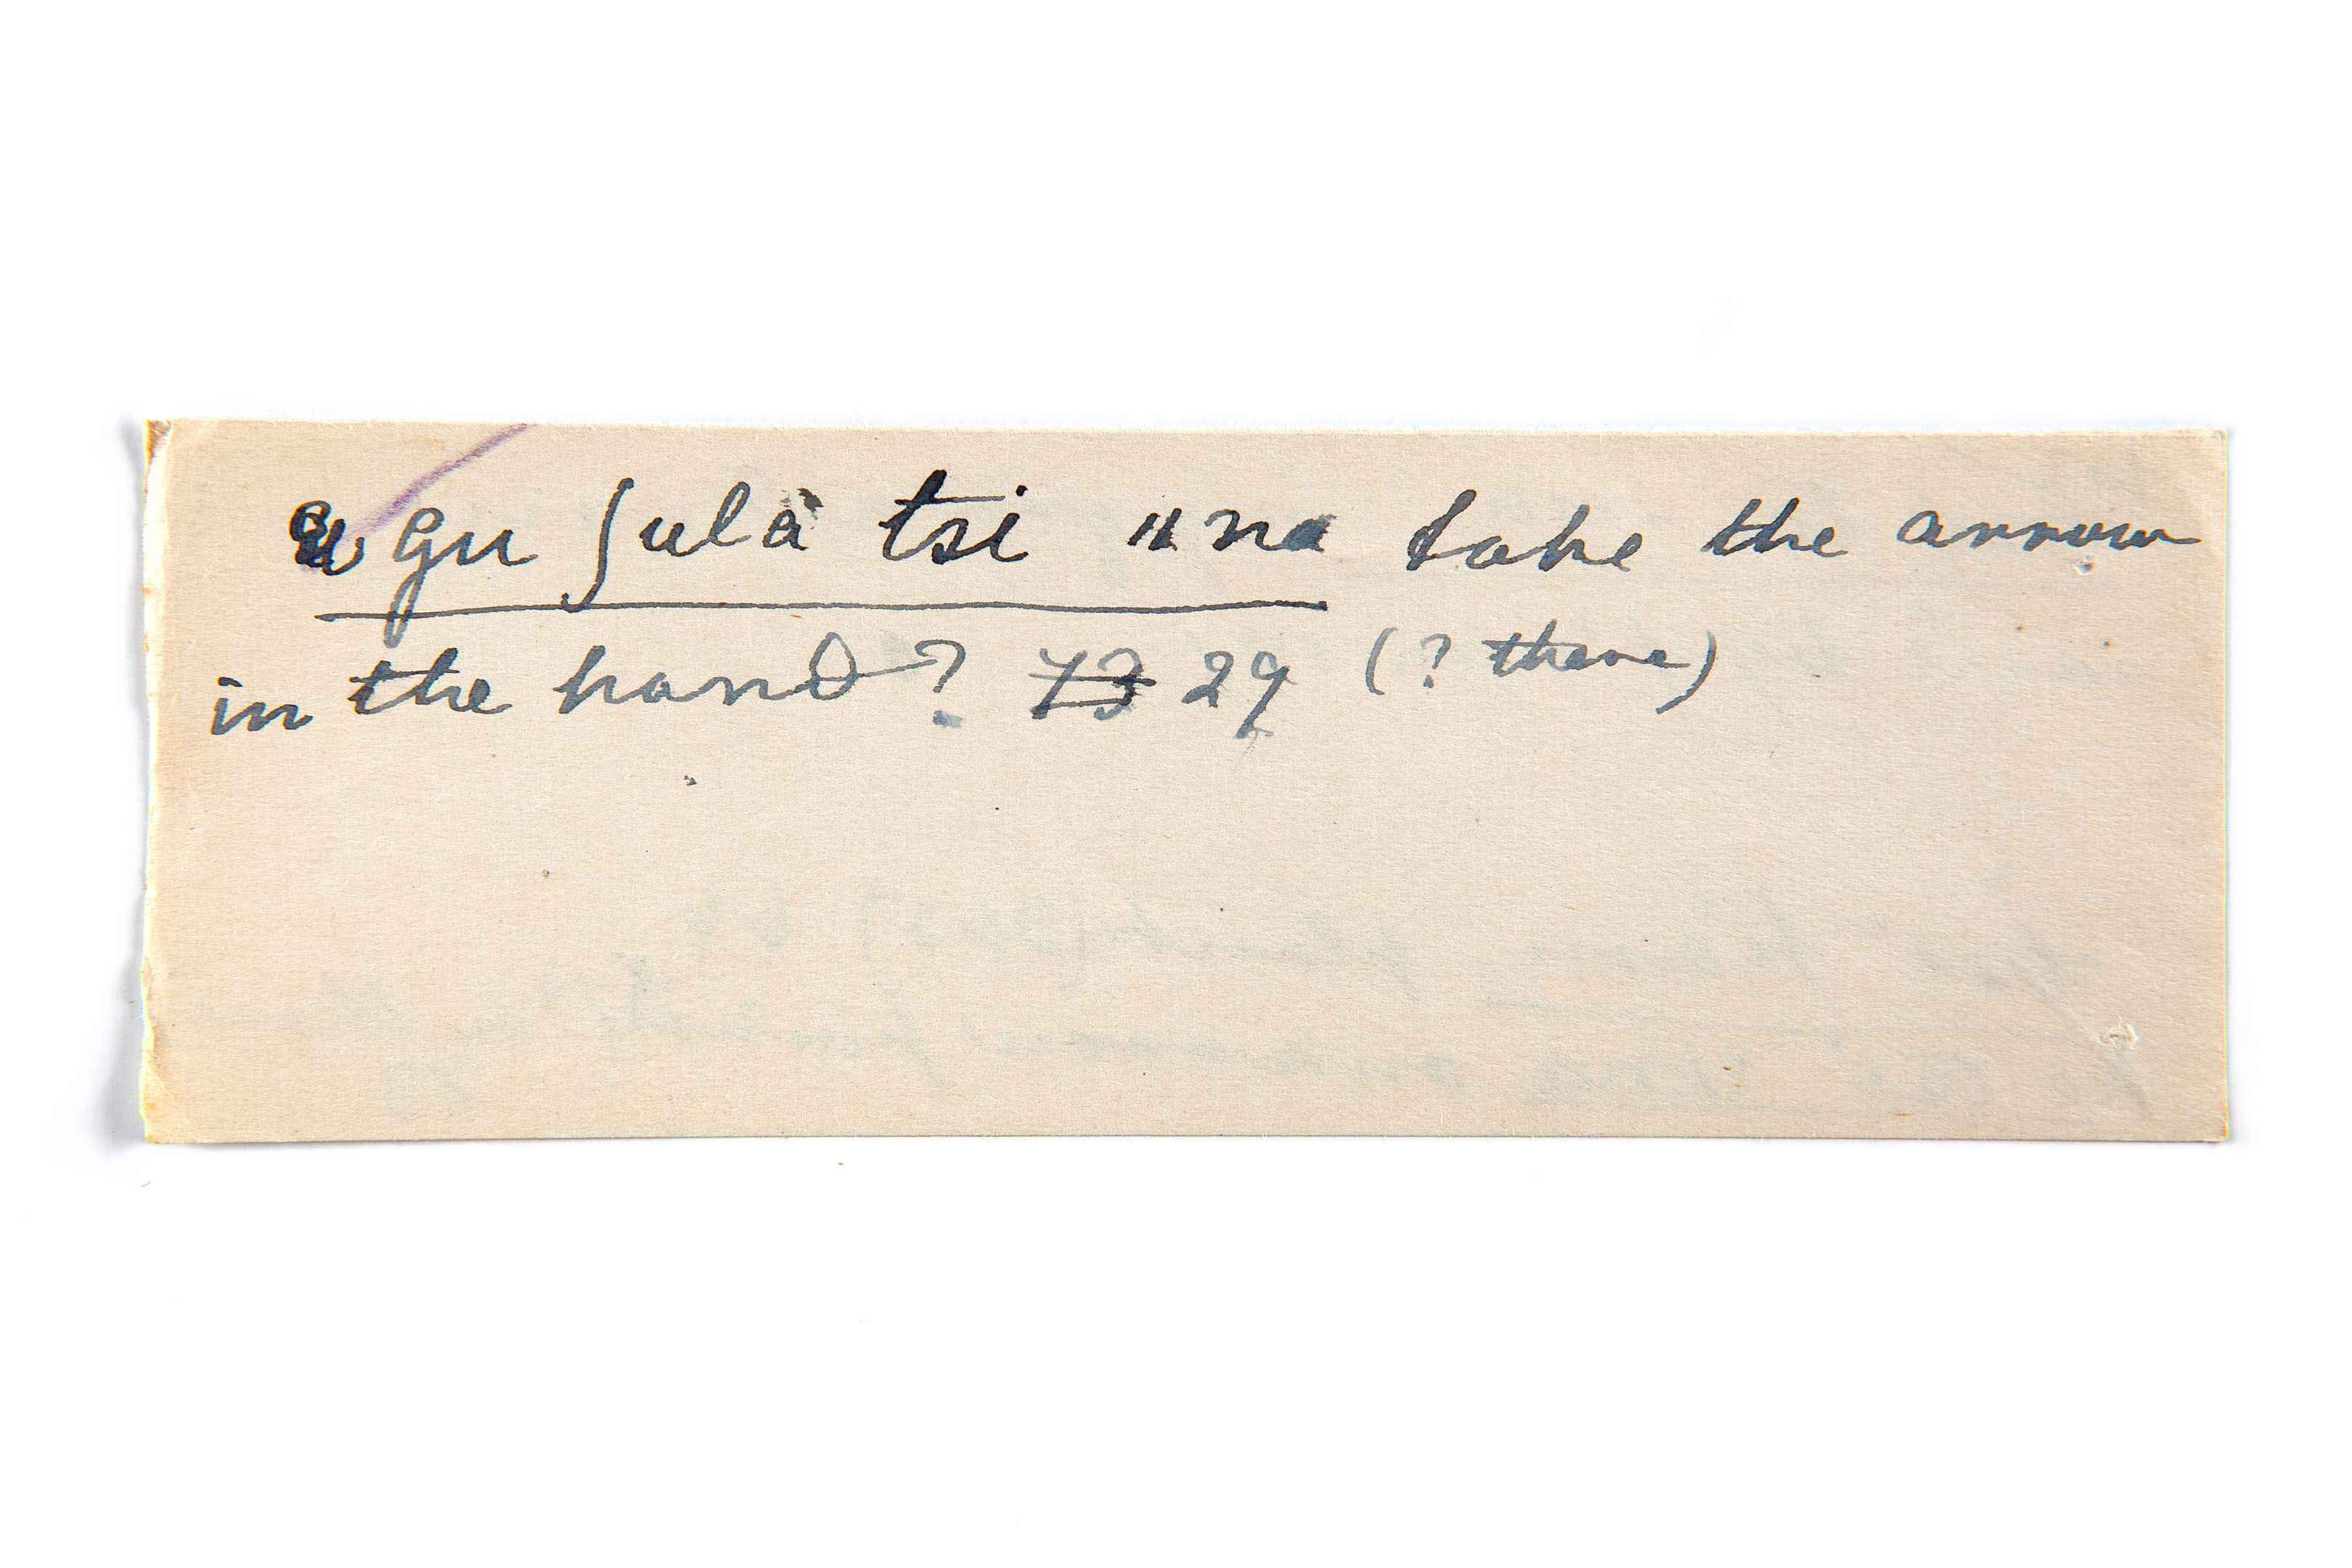 gu ʃula tsi ıına take the arrow
in the hand? 73 29 (? there)